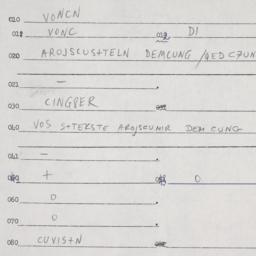 010 VONCN
011 VONC 012 DI
020 AROJSCUS+TELN DEMCUNG /
021 —
030 CINGPER
040 VOS S+TERSTE AROJSCUNIR DEM CUNG
041 —
+ 0
060 0
070 0
080 CUVIS+N